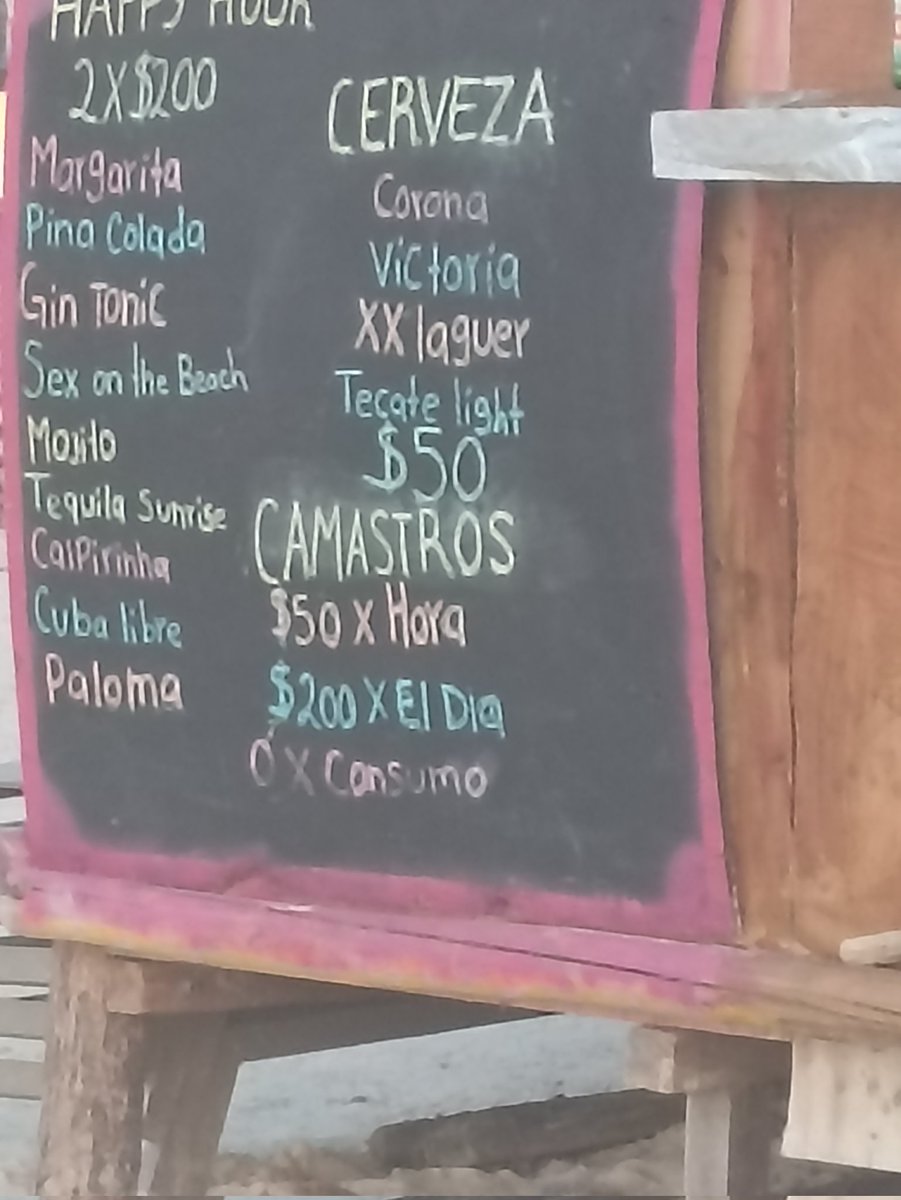 HAPPY HOUR
2X$200
Margarita
Pina Colada
Gin Tonic
Sex on the Beach
Mojito
Tequila Sunrise
CaiPirinha
Cuba libre
Paloma
CERVEZA
Corona
Victoria
XX laguer
Tecate light
$50
CAMASTROS
$50 X Hora
$200 X El Dia
Ó X Consumo